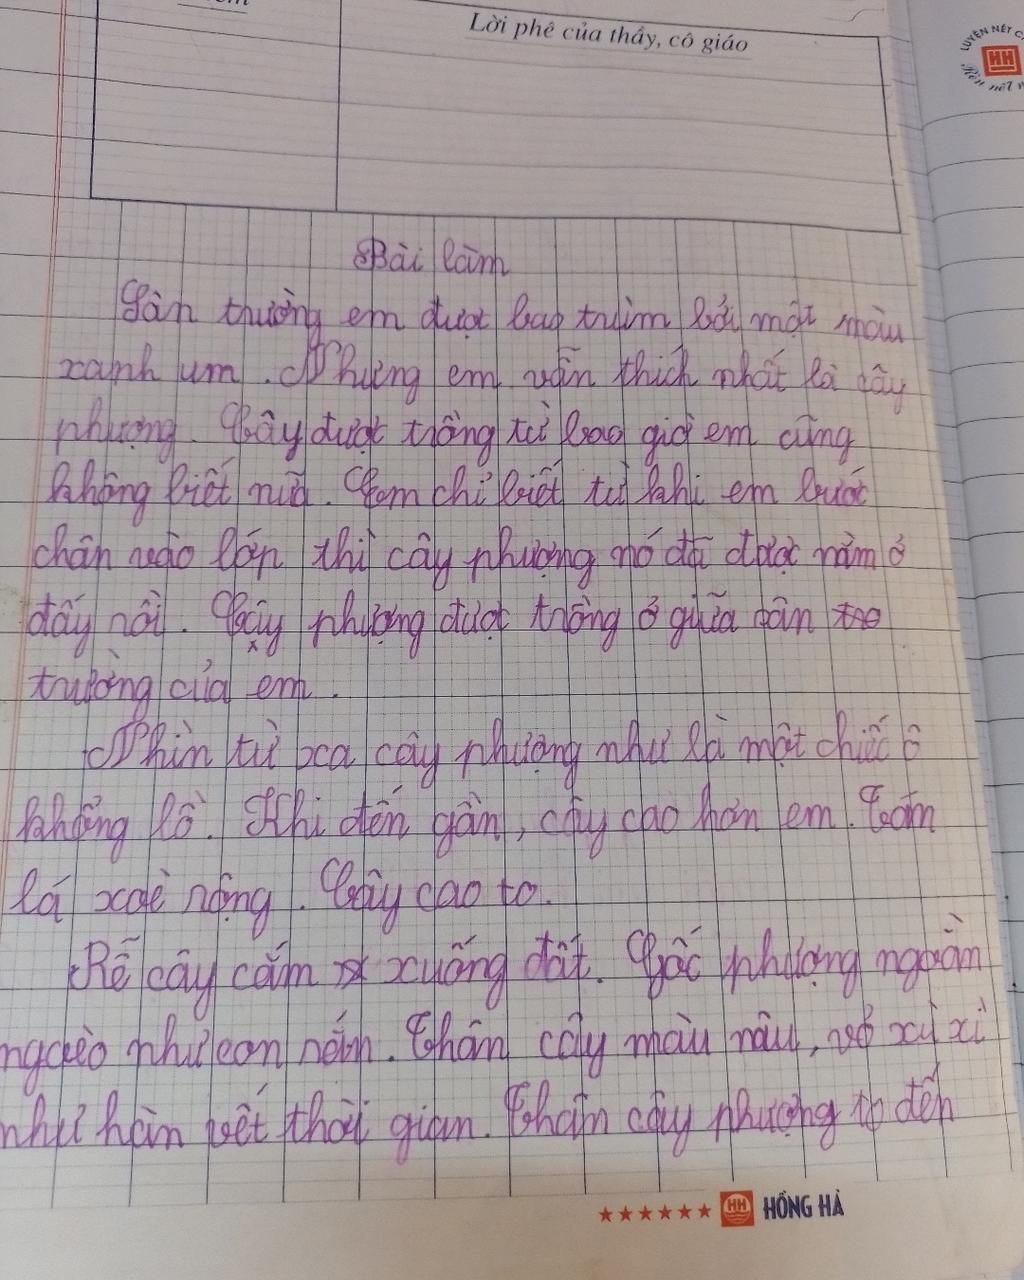 Lời phê của thầy, cô giáo
LUYỆN NÉT C
Rèn nết n
HH
Bài làm
Sân trường em được bao trùm bởi một màu
xanh um. Nhưng em vẫn thích nhất là cây
phượng. Cây được trồng từ bao giờ em cũng
không biết nữa. Em chỉ biết từ khi em bước
chân vào lớp thì cây phượng nó đã được nằm ở
đấy rồi. Cây phượng được trồng ở giữa sân
trường của em.
Nhìn từ xa cây phượng như là một chiếc ô
khổng lồ. Khi đến gần, cây cao hơn em. Tán
lá xoè rộng. Cây cao to.
Rễ cây cắm xuống đất. Gốc phượng ngoằn
ngoèo như con rắn. Thân cây màu nâu, vỏ xù xì
như hằn vết thời gian. Thân cây phượng to đến
HH HỒNG HÀ